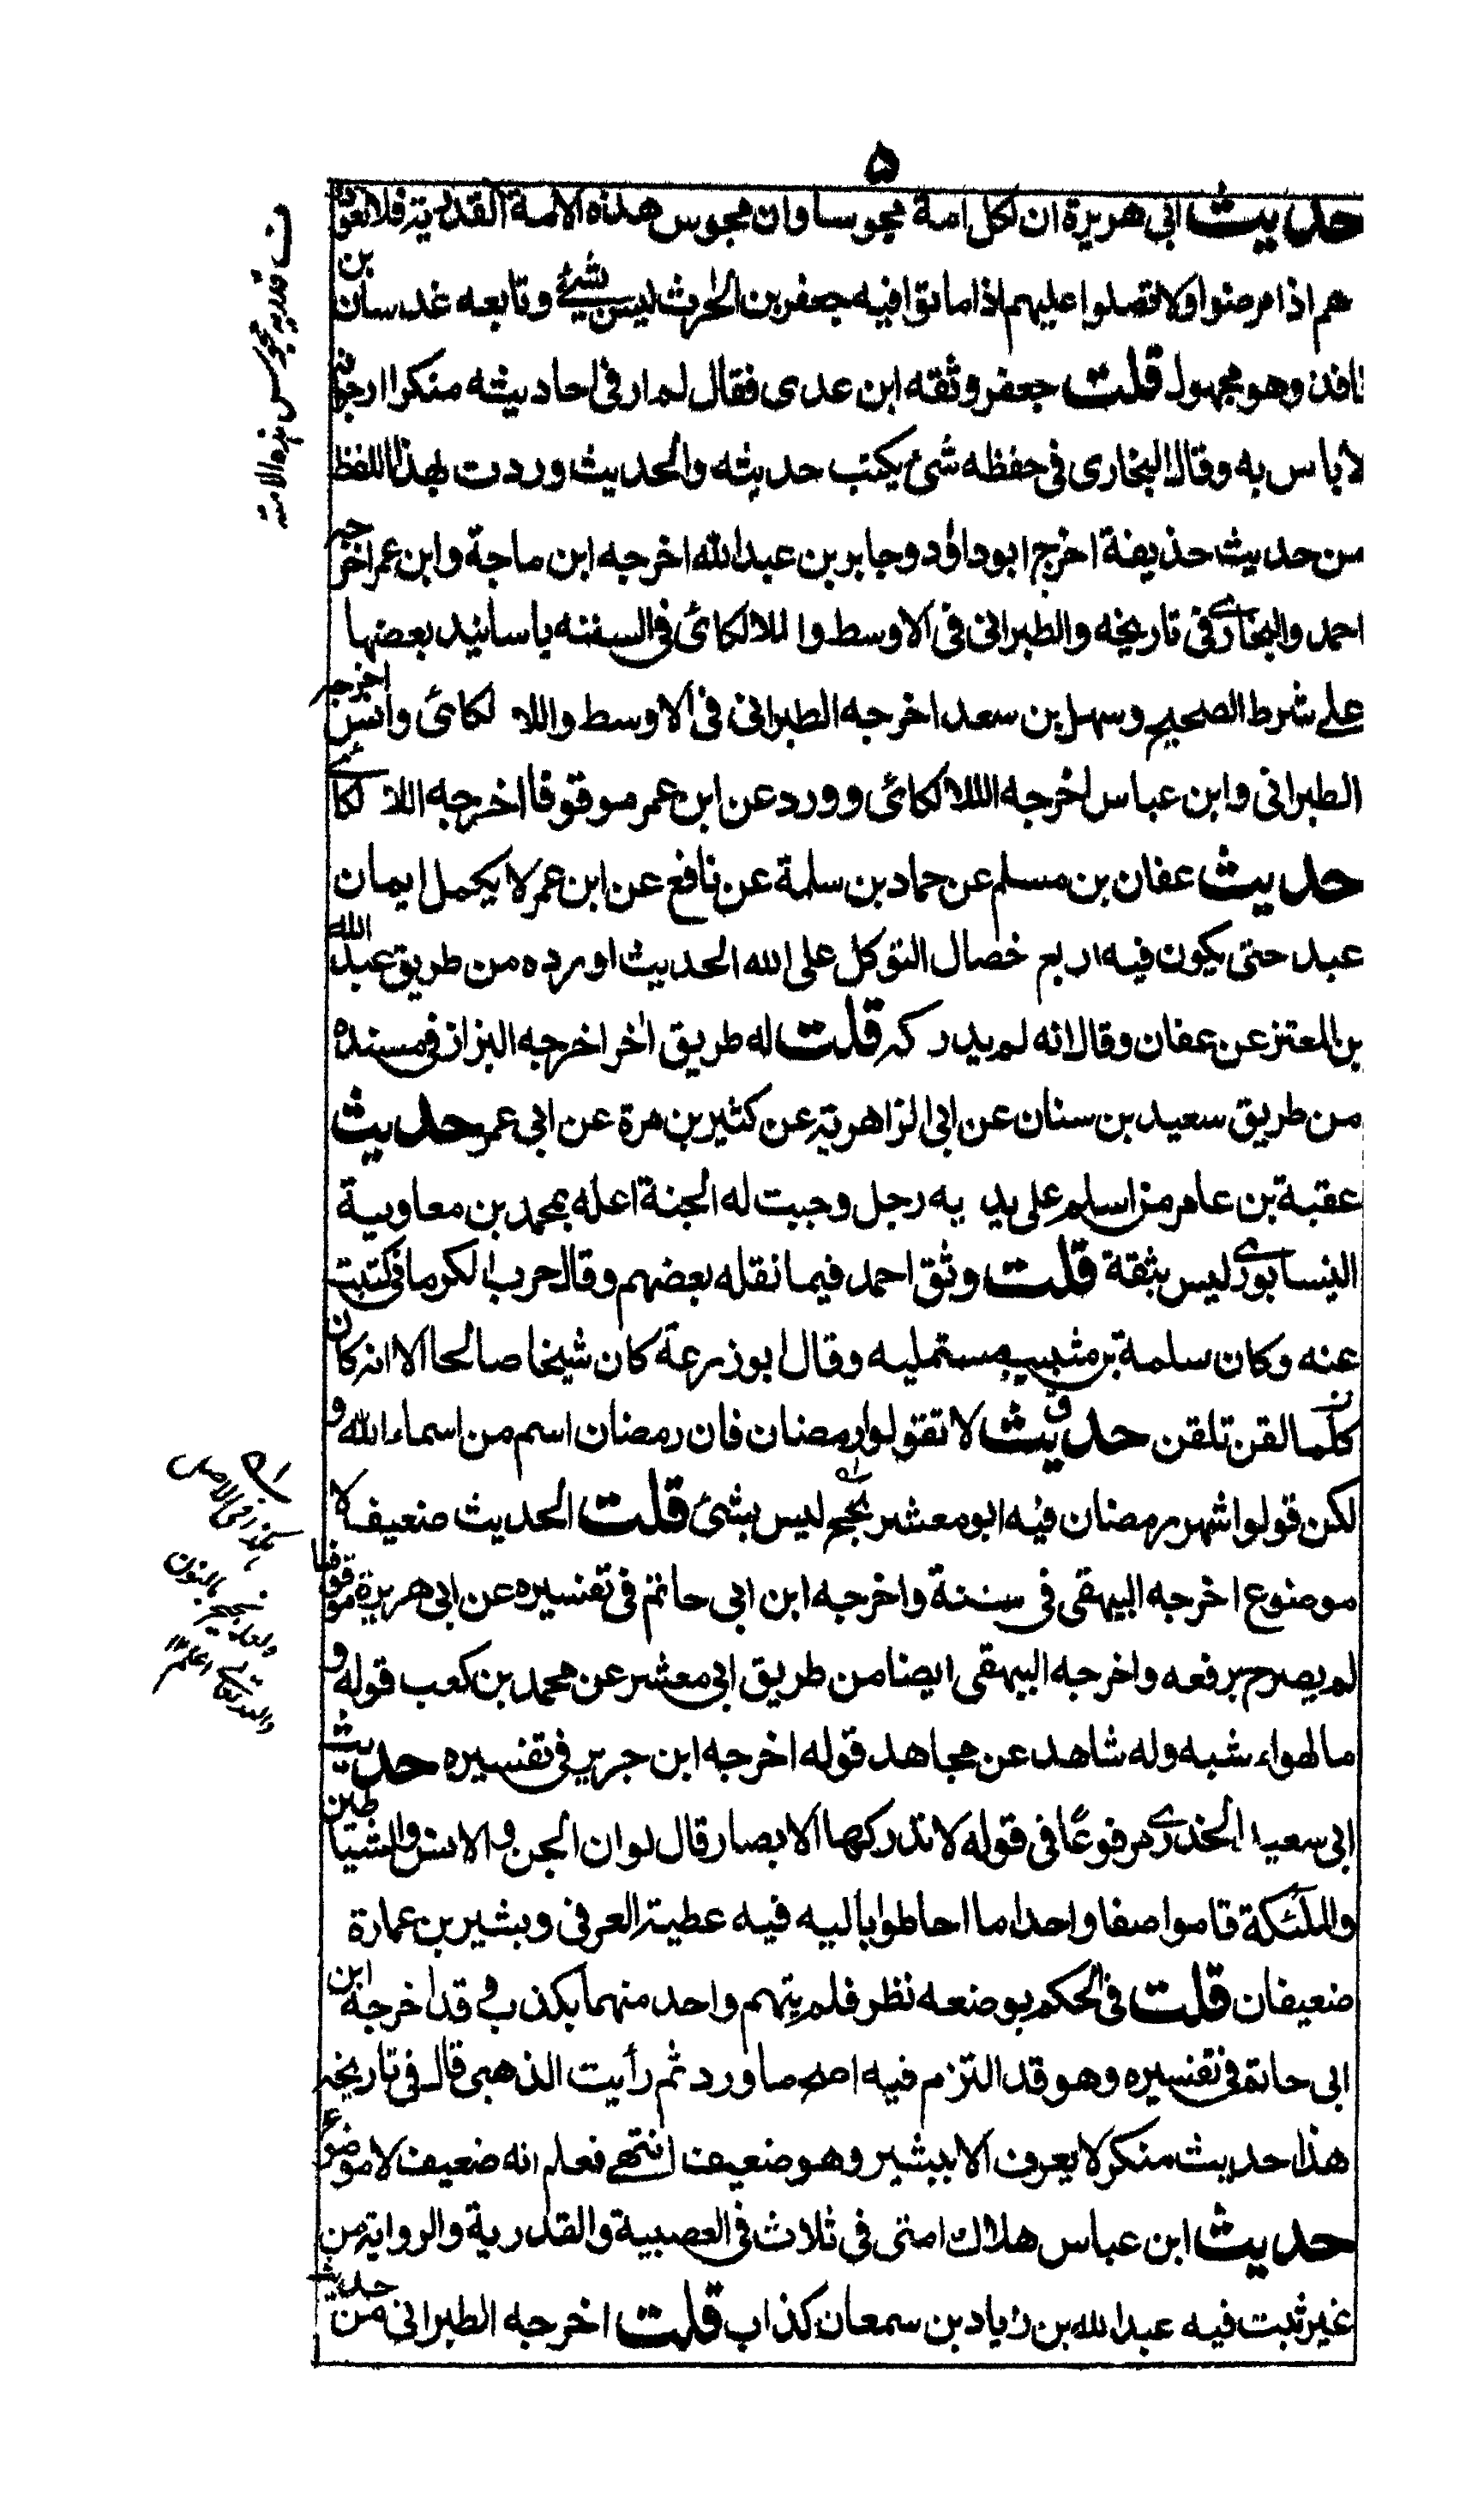 ۵
حديث ابى هريرة ان لكل امة مجوسا وان مجوس هذه الامة القدرية فلا تعود
هم اذا مرضوا ولا تصلوا عليهم اذا ماتوا فيه جعفر بن الحرث ليس بشيئ وتابعه غد سان بن
نافذ وهو مجهول قلت جعفر وثقه ابن عدى فقال لم ار فى احاديثه منكرا ارجو انه
لا باس به وقال البخارى فى حفظه شئ يكتب حديثه والحديث وردت بهذا اللفظ
من حديث حذيفة اخرج ابو داؤد وجابر بن عبد الله اخرجه ابن ماجة وابن عمر اخرجه
احمد والبخارى فى تاريخه والطبرانى فى الاوسط واللالكائى فى السننه باسانيد بعضها
على شرط الصحيح وسهل بن سعد اخرجه الطبرانى فى الاوسط واللالكائى وانس اخرجه
الطبرانى وابن عباس اخرجه اللالكائى وورد عن ابن عمر موقوفا اخرجه اللالكائى
حديث عفان بن مسلم عن حماد بن سلمة عن نافع عن ابن عمر لا يكمل ايمان
عبد حتى يكون فيه اربع خصال التوكل على الله الحديث اورده من طريق عبد الله
بن المعتز عن عفان وقال انه لم يدركه قلت له طريق اخر اخرجه البزاز فى مسنده
من طريق سعيد بن سنان عن ابى الزاهرية عن كثير بن مرة عن ابى عمر حديث
عقبة بن عامر من اسلم على يديه رجل وجبت له الجنة اعله بمحمد بن معاوية
النيسابورى ليس بثقة قلت وثق احمد فيما نقله بعضهم وقال حرب الكرمانى كتبت
عنه وكان سلمة بن شبيب مستمليه وقال ابو زرعة كان شيخا صالحا الا انه كان
كلما لقن تلقن حديث لا تقولوا رمضان فان رمضان اسم من اسماء الله و
لكن قولوا شهر رمضان فيه ابو معشر نجح ليس بشئ قلت الحديث ضعيف لا
موضوع اخرجه البيهقى فى سننة واخرجه ابن ابى حاتم فى تفسيره عن ابى هريرة موقوفا
لم يصرح برفعه واخرجه البيهقى ايضا من طريق ابى معشر عن محمد بن كعب قوله و
ما لهواء شبه وله شاهد عن مجاهد قوله اخرجه ابن جرير فى تفسيره حديث
ابى سعيد الخدرى مرفوعًا فى قوله لا تدركها الابصار قال لو ان الجن والانس والشياطين
والملئكة قاموا صفا واحدا ما احاطوا بالليه فيه عطية العرفى وبشير بن عمارة
ضعيفان قلت فى الحكم بوضعه نظر فلم يتهم واحد منهما بكذب و قد اخرجه ابن
ابى حاتم فى تفسيره وهو قد التزم فيه اصح ما ورد ثم رأيت الذهبى قال فى تاريخه
هذا حديث منكر لا يعرف الا ببشير وهو ضعيف انتهى فعلم انه ضعيف لا موضوع
حديث ابن عباس هلاك امتى فى ثلاث فى العصبية والقدرية والرواية من
غير ثبت فيه عبد الله بن زياد بن سمعان كذاب قلت اخرجه الطبرانى من حديث
ف قدريه مجوس هذه الامته
كذا فى الاصل
ولعله نجيح بالنون
والله تعالى اعلم